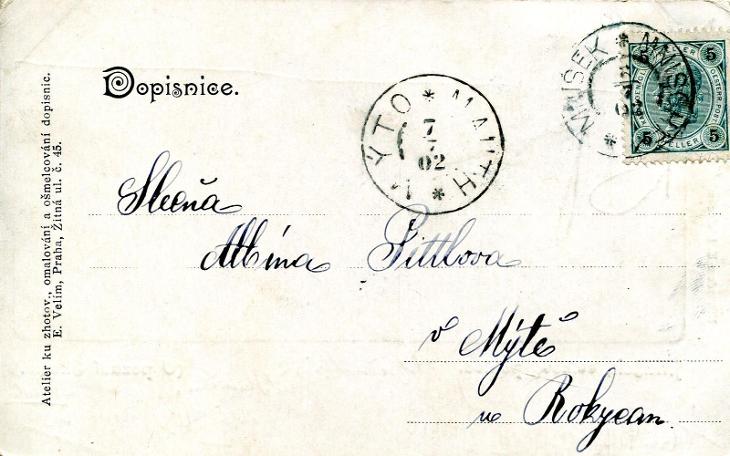 Dopisnice.
MÝTO * MAUTH *
7
7
02
MNÍŠEK * MNISCHEK *
5
5
5
HELLER
Slečna
Albína Pittlova
v Mýtě
u Rokycan.
Atelier ku zhotov., omalování a ošmelcování dopisnic.
E. Velím, Praha, Žitná ul. č. 45.